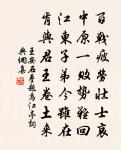 百戰疲勞壯士哀
中原一敗勢難回
江東子弟今雖在
肯與君王卷土來
王安石叠題烏江亭詞
典網集